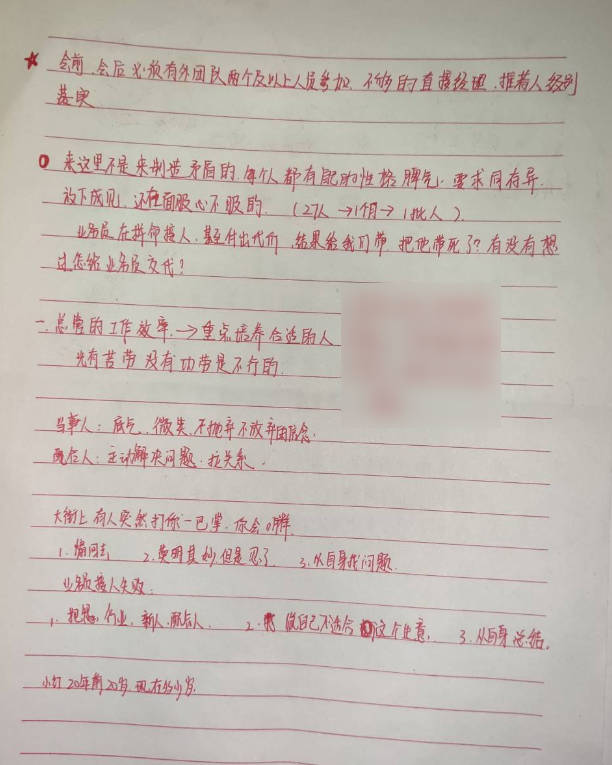 ★ 会前、会后必须有外团队两个及以上人员参加、不够的直接经理、推荐人级别
落实
来这里不是来制造矛盾的、每个人都有自己的性格脾气、要求同存异.
放下成见、还在面服心不服的.(27人→1个月→1批人).
业务员在拼命接人、甚至付出代价、结果给我们带 把他带死了?有没有想
过怎么给业务员交代?
一、总管的工作效率.→重点培养合适的人
光有苦劳没有功劳是不行的.
当事人:底气、微笑、不抛弃不放弃的信念.
配合人:主动解决问题、拉关系.
大街上有人突然打你一巴掌.你会咋样.
1.扇回去 2.莫明其妙,但是忍了 3.从自身找问题.
业务员接人失败.
1、抱怨、行业、新人、配合人. 2. 做自己不适合这个生意. 3.从自身总结.
小红20年前20岁 现在多少岁.